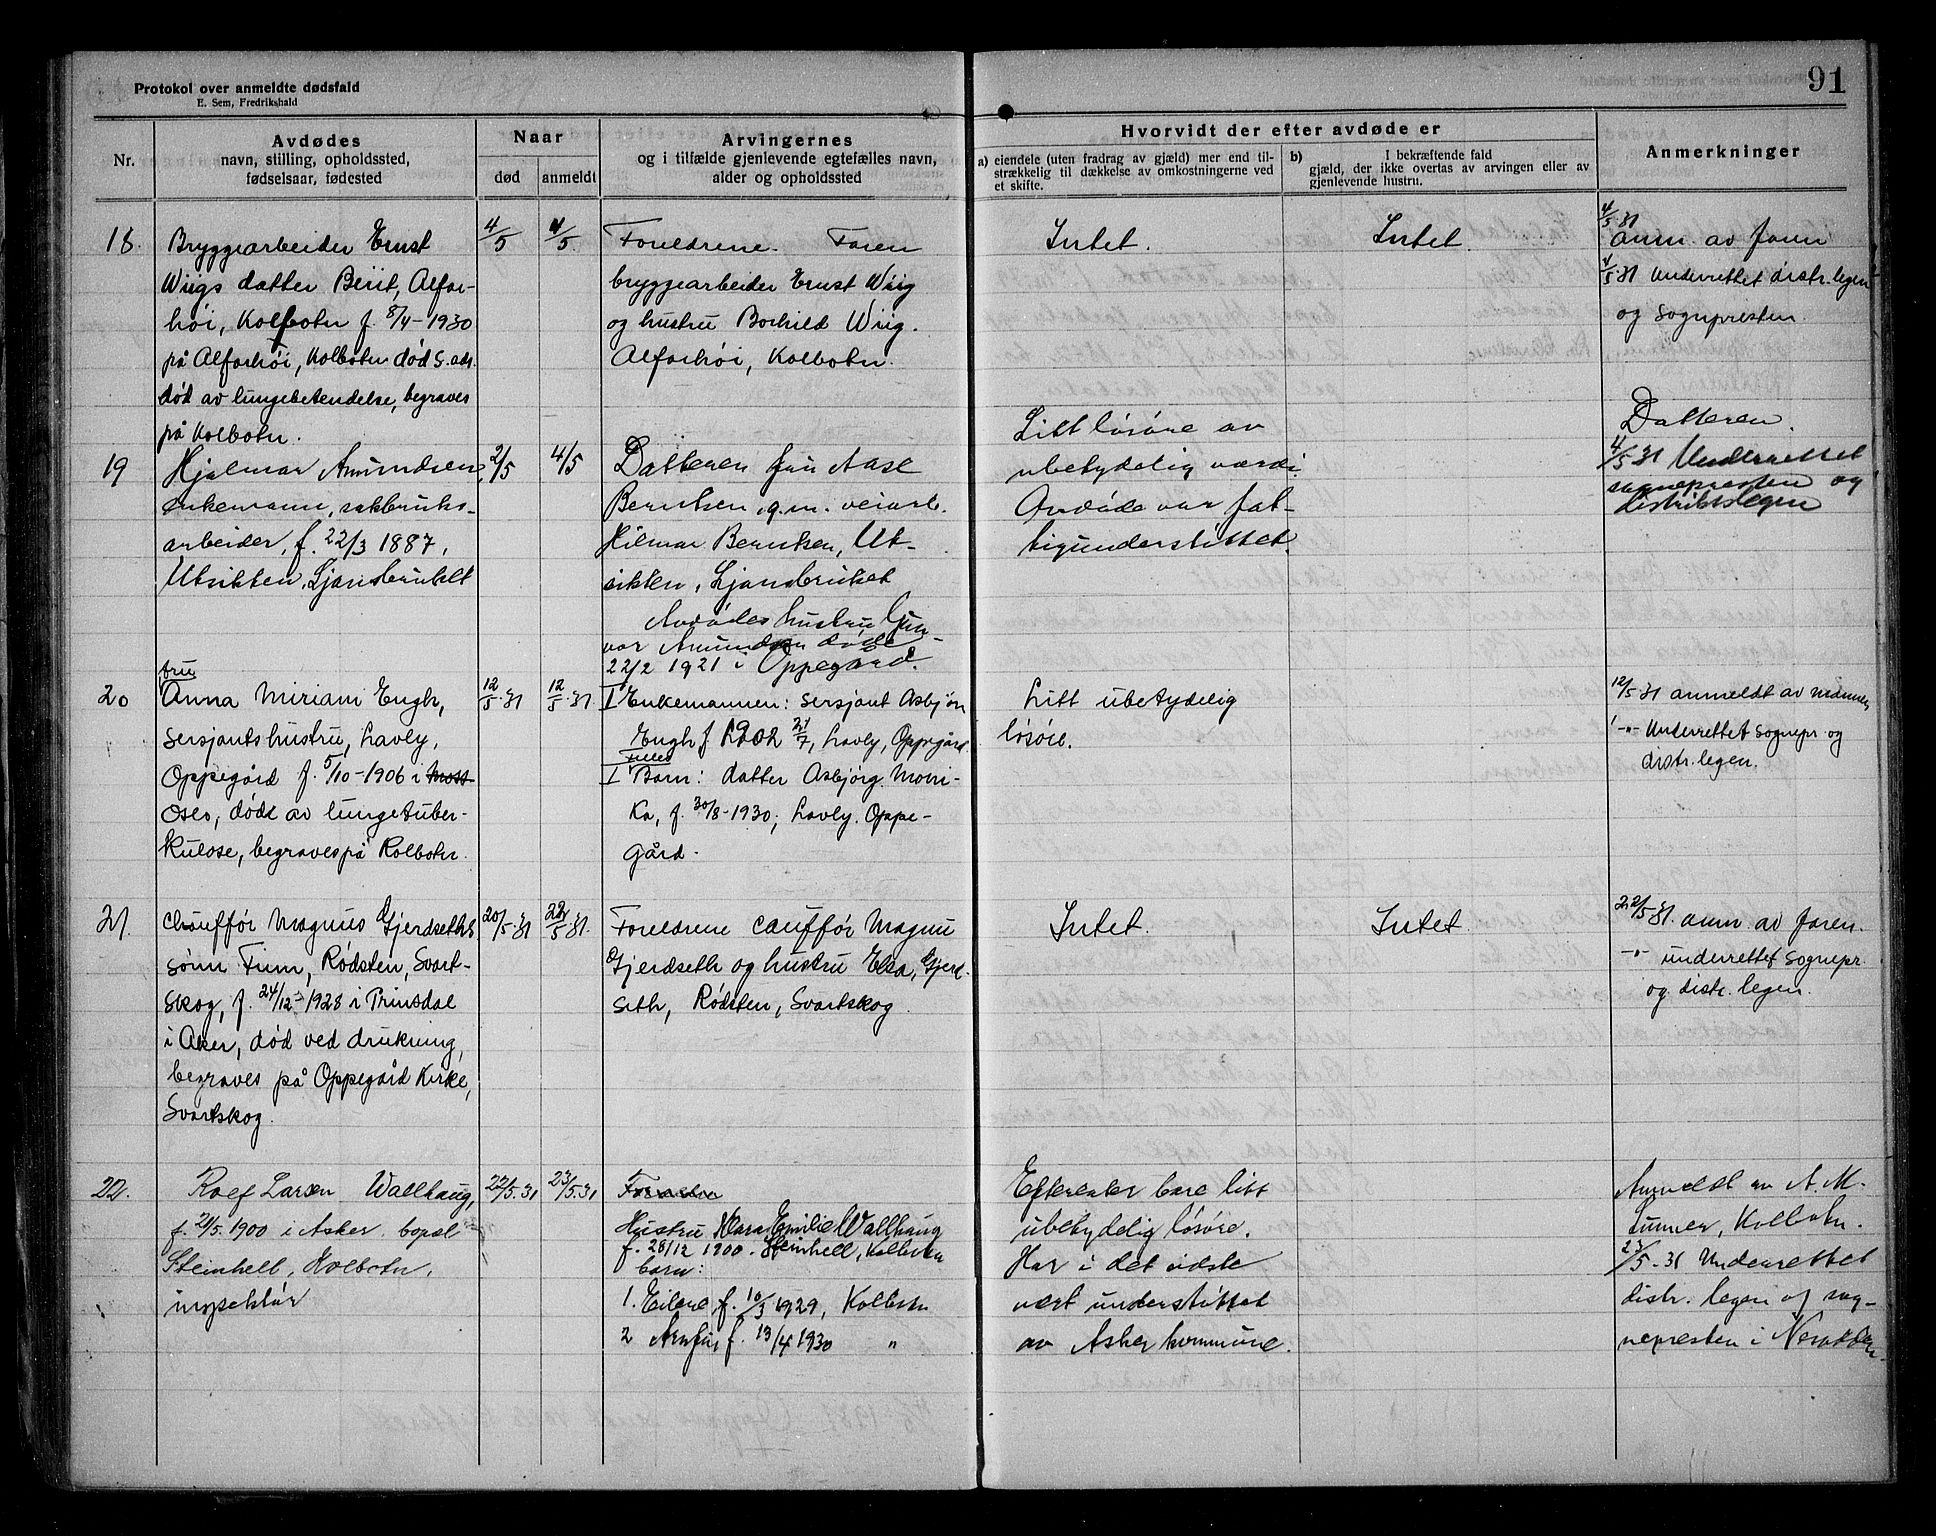 91
Protokol over anmeldte dødsfald
E. Sem, Fredrikshald
Nr.
Avdødes
navn, stilling, opholdssted,
fødselsaar, fødested
Naar
død
anmeldt
Arvingernes
og i tilfælde gjenlevende egtefælles navn,
alder og opholdssted
Hvorvidt der efter avdøde er
a) eiendele (uten fradrag av gjæld) mer end til-
strækkelig til dækkelse av omkostningerne ved
et skifte.
b) I bekræftende fald
gjæld, der ikke overtas av arvingen eller av
gjenlevende hustru.
Anmerkninger
18.
Bryggearbeider Ernst
Wiigs datter Berit, Alfar-
høi, Kolbotn f. 8/4-1930
på Alfarhøi, Kolbotn død s. ads.
død av lungebetendelse, begraves
på Kolbotn.
4/5
4/5
Foreldrene. Faren
bryggearbeider Ernst Wiig
og hustru Borhild Wiig.
Alfarhøi, Kolbotn.
Intet.
Intet.
4/5.31
anm. av faren
4/5.31 Underrettet distr.legen
og Sognepresten.
19
Hjalmar Amundsen,
enkemann, sakbruks-
arbeider, f. 22/3 1887,
Utsikten, Ljansbruket
2/5
4/5
Datteren fru Aase
Berntsen, g.m. veiarb.
Hilmar Berntsen, Ut-
sikten, Ljansbruket
Avdødes hustru Gun-
vor Amundsen døde
22/2 1921 i Oppegaard.
Litt løsøre av
ubetydelig værdi.
Avdøde var fat-
tigunderstøttet.
Datteren.
4/5 31 Underrettet
sognepresten og
distriktslegen
20
fru
Anna Miriam Engh,
Sersjants hustru, Lavly,
Oppegård f. 5/10-1906 i Moss
Oslo, døde av lungetuber-
kulose, begraves på Kolbotn.
12/5.31
12/5.31
I Enkemannen: Sersjant Asbjørn
Engh f 1902 21/7, Lavly, Oppegård.
Felles
I Barn: datter Asbjørg Moni-
ka, f. 30/8-1930, Lavly. Oppe-
gård.
Litt ubetydelig
løsøre.
12/5 31 anmeldt av mannen
-"- Underrettet Sognepr og
distr.legen.
21.
Chauffør Magnus Gjerdseths
sønn Finn, Rødsten, Svart-
skog, f. 24/12-1928 i Prinsdal
i Aker, død ved drukning,
begraves på Oppegård Kirke,
Svartskog.
20/5.31
22/5.31.
Foreldrene cauffør Magnu
Gjerdseth og hustru Elsa, Gjerd-
seth, Rødsten, Svartskog.
Intet.
Intet.
22/5 31. anm. av faren.
-"- underrettet Sognepr.
og distr. legen.
22.
Rolf Larsen Wallhaug,
f. 21/5. 1900 i Asker, bopel
Steinhell, Kolbotn,
inspektør
22/5.31
23/5.31
Hustru Klara Emilie Wallhaug
f. 28/12 1900. Steinhell, Kolbotn
barn:
1. Eilert, f. 10/3 1929, Kolbotn
2 Arnfin, f. 19/4 1930 "
Efterlater bare litt
ubetydelig løsøre.
Har i det sidste
vært understøttet
av Asker kommune.
Anmeldt av A. M.
Lunner, Kolbotn.
23/5-31 Underrettet
distr. legen og sog-
nepresten i Nesodden.